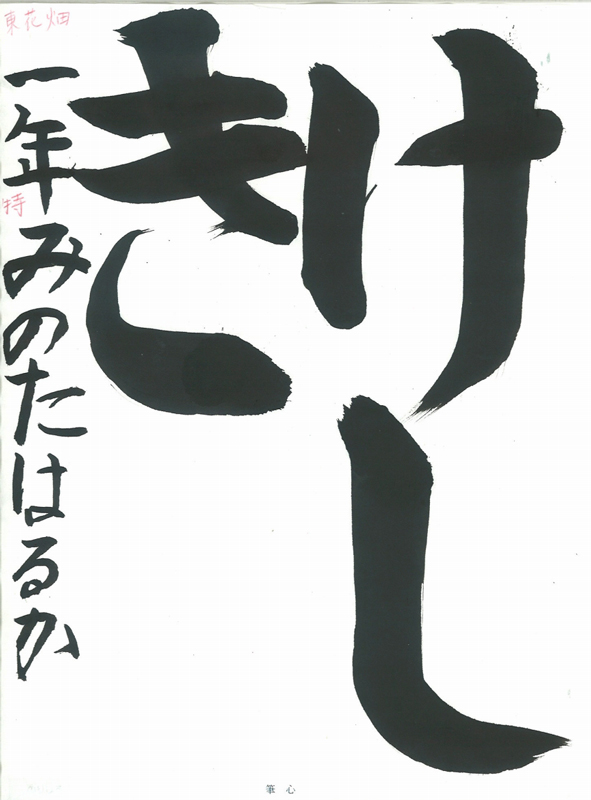 けし
き
一年みのたはるか
東花畑
特
筆心